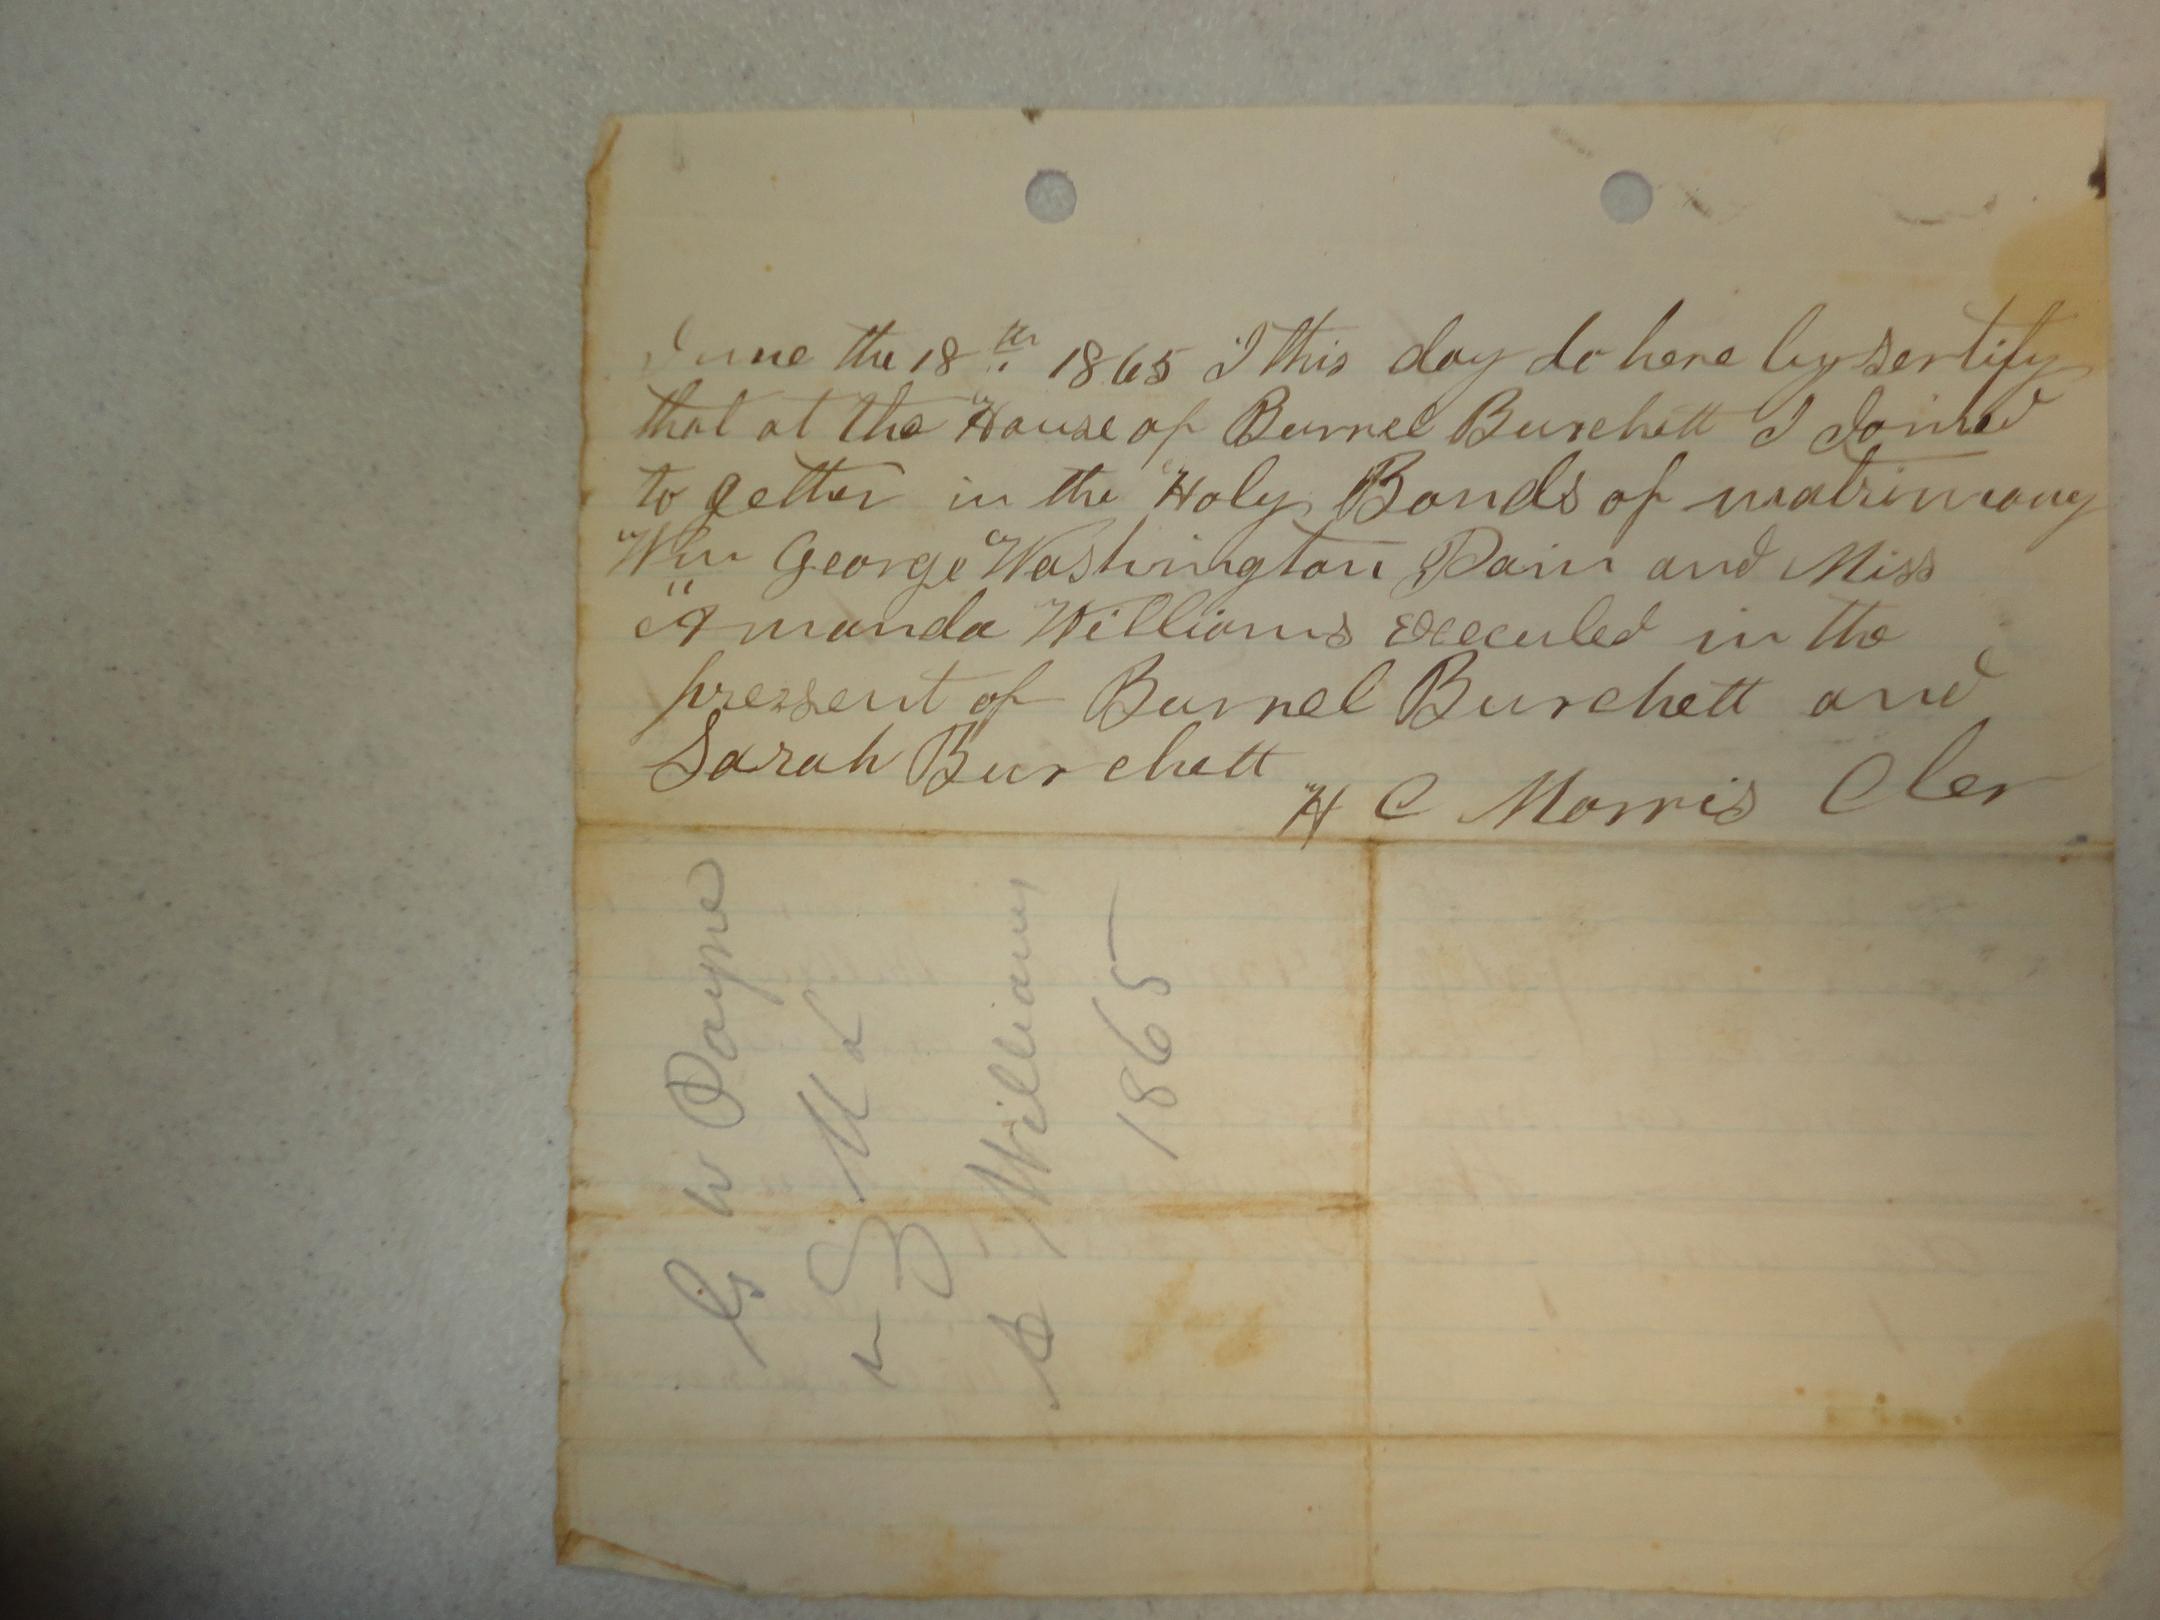 June the 18th 1865 I this day do here by sertify
that at the House of Burrel Burchett I Joined
to gether in the Holy Bonds of matrimony
Wm George Washington Pain and Miss
Amanda Williams executed in the
pressent of Burrel Burchett and
Sarah Burchett
H C Morris Cler
G W Payne
A Williams
1865